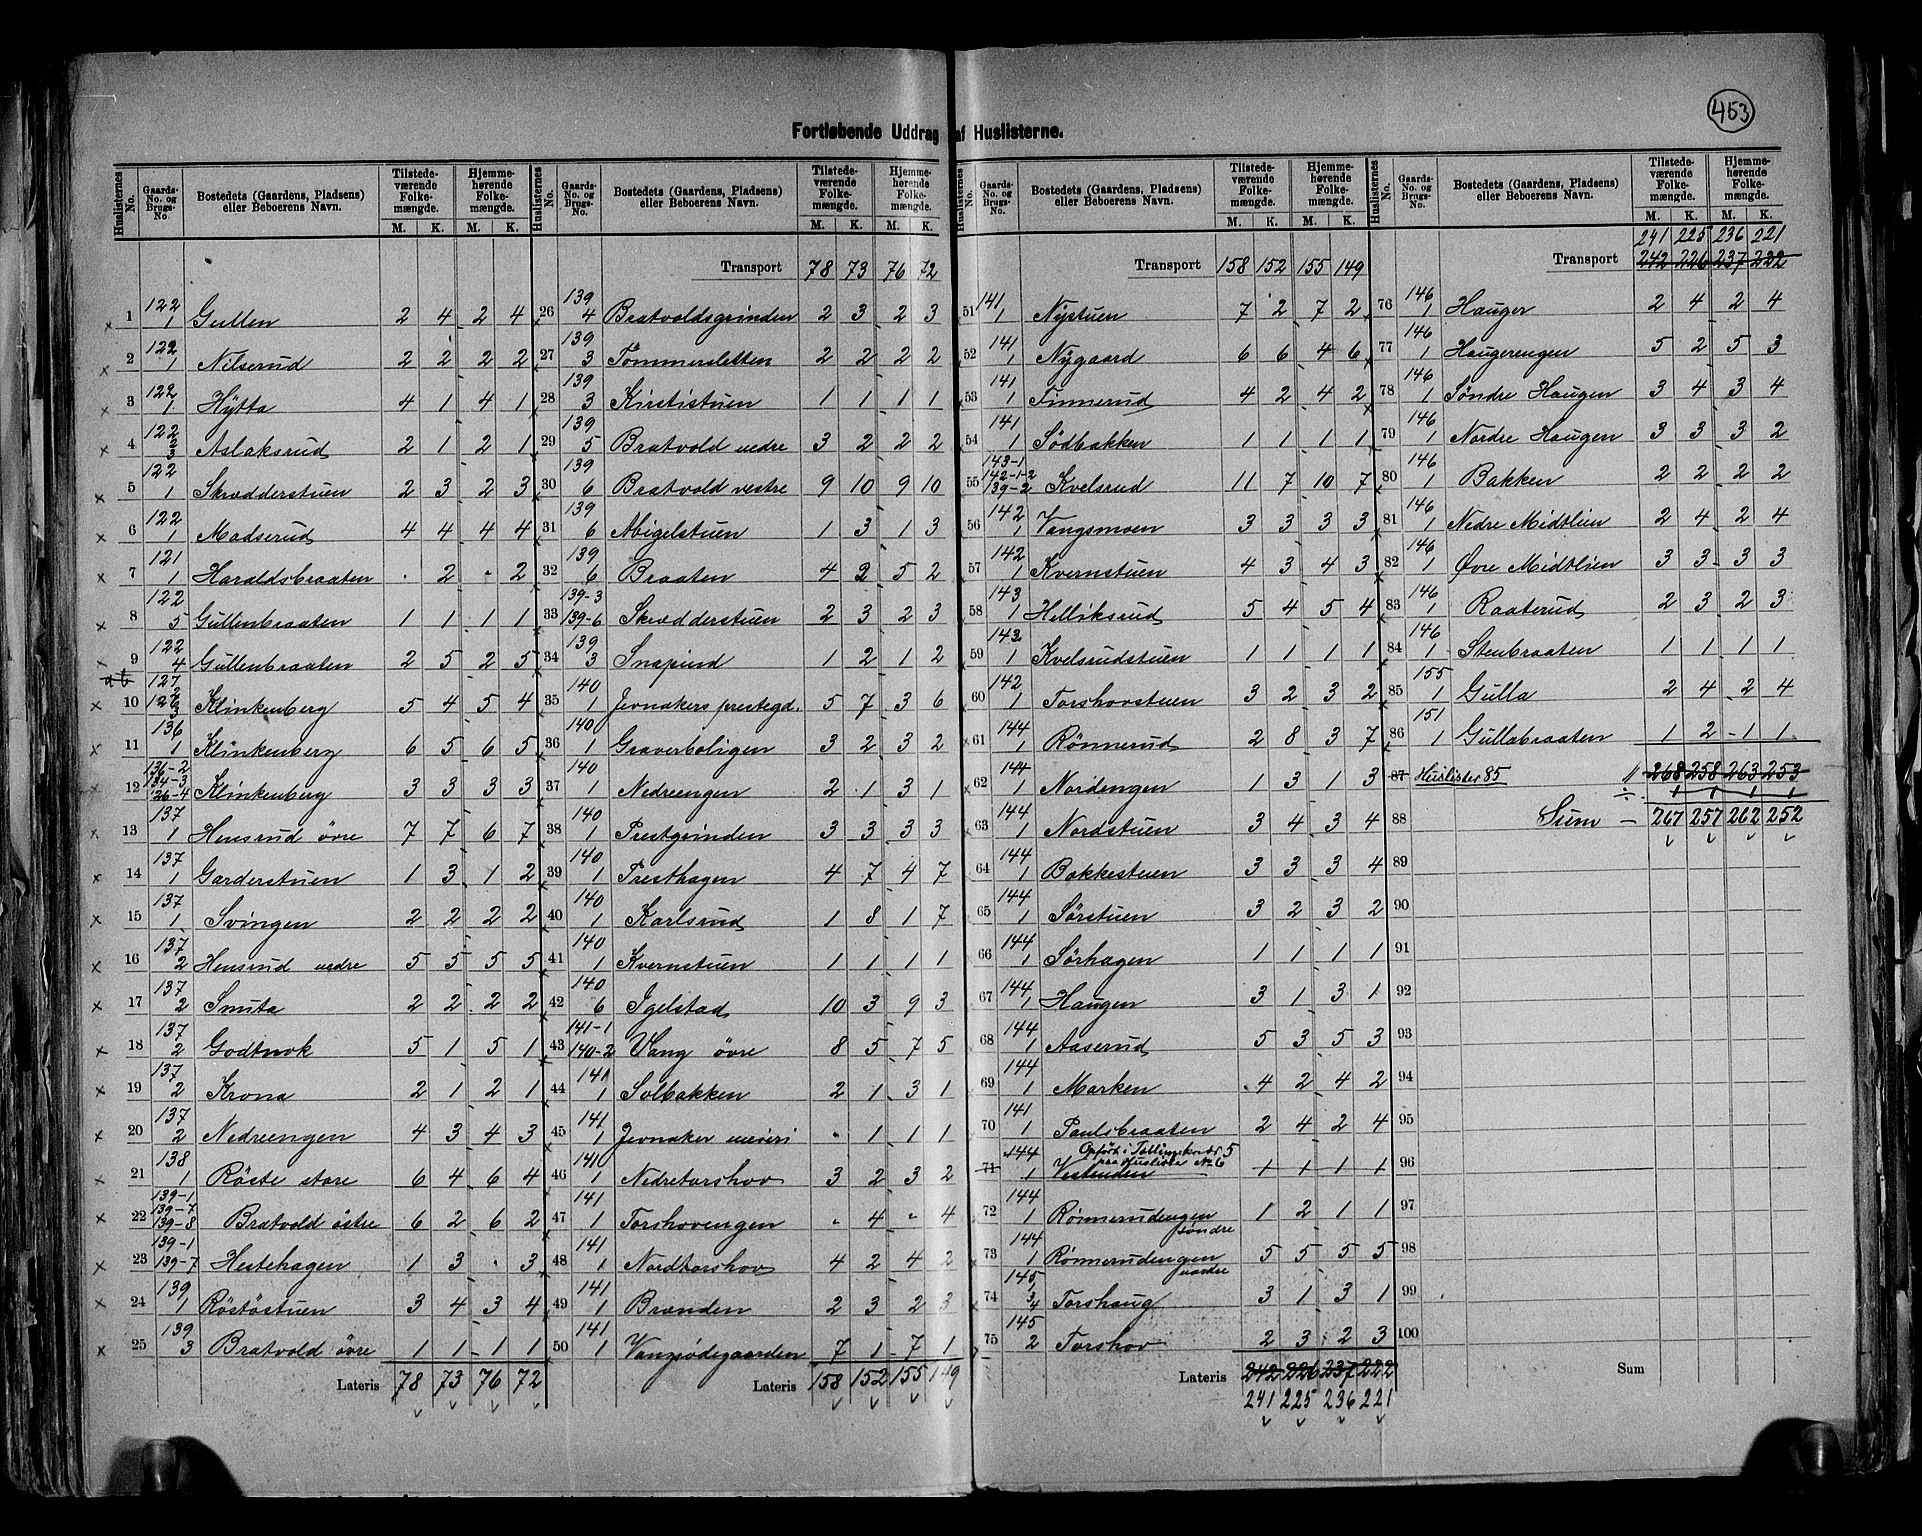 453
Fortløbende Uddrag af Huslisterne.
Huslisternes No. | Gaards-No. og Brugs-No. | Bostedets (Gaardens, Pladsens) eller Beboerens Navn. | Tilstedeværende Folkemængde. M. K. | Hjemmehørende Folkemængde. M. K.
1 | 122 1 | Gullen | 2 | 4 | 2 | 4
2 | 122 1 | Nilserud | 2 | 2 | 2 | 2
3 | 122 1 | Hytta | 4 | 1 | 4 | 1
4 | 122 2 3 | Aslaksrud | 2 | 1 | 2 | 1
5 | 122 1 | Skrædderstuen | 2 | 3 | 2 | 3
6 | 122 1 | Madserud | 4 | 4 | 4 | 4
7 | 121 1 | Haraldsbraaten | . | 2 | . | 2
8 | 122 5 | Gullenbraaten | 1 | 1 | 1 | 1
9 | 122 4 | Gullenbraaten | 2 | 5 | 2 | 5
10 | 127 2 126 3 | Klinkenberg | 5 | 4 | 5 | 4
11 | 136 1 | Klinkenberg | 6 | 5 | 6 | 5
12 | 136-2 134-3 126-4 | Klinkenberg | 3 | 3 | 3 | 3
13 | 137 1 | Hensrud övre | 7 | 7 | 6 | 7
14 | 137 1 | Garderstuen | 1 | 3 | 1 | 2
15 | 137 1 | Svingen | 2 | 2 | 2 | 2
16 | 137 2 | Hensrud nedre | 5 | 5 | 5 | 5
17 | 137 2 | Smuta | 2 | 2 | 2 | 2
18 | 137 2 | Godtnok | 5 | 1 | 5 | 1
19 | 137 2 | Krona | 2 | 1 | 2 | 1
20 | 137 2 | Nedreengen | 4 | 3 | 4 | 3
21 | 138 1 | Röste store | 6 | 4 | 6 | 4
22 | 139-1 139-7 139-8 | Bratvold östre | 6 | 2 | 6 | 2
23 | 139-1 139-7 | Hestehagen | 1 | 3 | . | 3
24 | 139 1 | Röstöstuen | 3 | 4 | 3 | 4
25 | 139 3 | Bratvold övre | 1 | 1 | 1 | 1
Lateris | 78 | 73 | 76 | 72
Huslisternes No. | Gaards-No. og Brugs-No. | Bostedets (Gaardens, Pladsens) eller Beboerens Navn. | Tilstedeværende Folkemængde. M. K. | Hjemmehørende Folkemængde. M. K.
Transport | 78 | 73 | 76 | 72
26 | 139 4 | Bratvoldsgrinden | 2 | 3 | 2 | 3
27 | 139 3 | Tömmersletten | 2 | 2 | 2 | 2
28 | 139 3 | Kirstistuen | 1 | 1 | 1 | 1
29 | 139 5 | Bratvold nedre | 3 | 2 | 2 | 2
30 | 139 6 | Bratvold vestre | 9 | 10 | 9 | 10
31 | 139 6 | Abigelstuen | 1 | 3 | 1 | 3
32 | 139 6 | Braaten | 4 | 2 | 5 | 2
33 | 139-3 139-6 | Skrædderstuen | 2 | 3 | 2 | 3
34 | 139 3 | Snapind | 1 | 2 | 1 | 2
35 | 140 1 | Jevnakers prestegd. | 5 | 7 | 3 | 6
36 | 140 1 | Graverboligen | 3 | 2 | 3 | 2
37 | 140 1 | Nedreengen | 2 | 1 | 3 | 1
38 | 140 1 | Prestgrinden | 3 | 3 | 3 | 3
39 | 140 1 | Presthagen | 4 | 7 | 4 | 7
40 | 140 1 | Karlsrud | 1 | 8 | 1 | 7
41 | 140 1 | Kvernstuen | 1 | 1 | 1 | 1
42 | 140 6 | Igelstad | 10 | 3 | 9 | 3
43 | 141-1 140-2 | Vang övre | 8 | 5 | 7 | 5
44 | 141 1 | Solbakken | 2 | 1 | 3 | 1
45 | 141 1 | Jevnaker meieri | . | 1 | 1 | 1
46 | 141 1 | Nedretorshov | 3 | 2 | 3 | 2
47 | 141 1 | Torshovengen | . | 4 | . | 4
48 | 141 1 | Nordtorshov | 4 | 2 | 4 | 2
49 | 141 1 | Brænden | 2 | 3 | 2 | 3
50 | 141 1 | Vangsödegaarden | 7 | 1 | 7 | 1
Lateris | 158 | 152 | 155 | 149
Huslisternes No. | Gaards-No. og Brugs-No. | Bostedets (Gaardens, Pladsens) eller Beboerens Navn. | Tilstedeværende Folkemængde. M. K. | Hjemmehørende Folkemængde. M. K.
Transport | 158 | 152 | 155 | 149
51 | 141 1 | Nystuen | 7 | 2 | 7 | 2
52 | 141 1 | Nygaard | 6 | 6 | 4 | 6
53 | 141 1 | Finnerud | 4 | 2 | 4 | 2
54 | 141 1 | Södbakken | 1 | 1 | 1 | 1
55 | 143-1 142-1-2 139-2 | Kvelsrud | 11 | 7 | 10 | 7
56 | 142 1 | Vangsmoen | 3 | 3 | 3 | 3
57 | 142 1 | Kvernstuen | 4 | 3 | 4 | 3
58 | 143 1 | Helliksrud | 5 | 4 | 5 | 4
59 | 143 1 | Kvelsrudstuen | 1 | 1 | 1 | 1
60 | 142 1 | Torshovstuen | 3 | 2 | 3 | 2
61 | 144 1 | Rönnerud | 2 | 8 | 3 | 7
62 | 144 1 | Nordengen | 1 | 3 | 1 | 3
63 | 144 1 | Nordstuen | 3 | 4 | 3 | 4
64 | 144 1 | Bakkestuen | 3 | 3 | 3 | 4
65 | 144 1 | Sörstuen | 3 | 2 | 3 | 2
66 | 144 1 | Sörhagen | 1 | 1 | 1 | 1
67 | 144 1 | Haugen | 3 | 1 | 3 | 1
68 | 144 1 | Aaserud | 5 | 3 | 5 | 3
69 | 144 1 | Marken | 4 | 2 | 4 | 2
70 | 141 1 | Paulsbraaten | 2 | 4 | 2 | 4
Opført i Tællingskreds 5
paa Husliste No 6
71 | 144 1 | Vestenden | 1 | 1 | 1 | 1
72 | 144 1 | Rönnerudengen söndre | 1 | 2 | 1 | 1
73 | 144 1 | Rönnerudengen nordre | 5 | 5 | 5 | 5
74 | 145 3 4 | Torshaug | 3 | 1 | 3 | 1
75 | 145 2 | Torshov | 2 | 3 | 2 | 3
Lateris | 242 | 226 | 237 | 222
241 | 225 | 236 | 221
Huslisternes No. | Gaards-No. og Brugs-No. | Bostedets (Gaardens, Pladsens) eller Beboerens Navn. | Tilstedeværende Folkemængde. M. K. | Hjemmehørende Folkemængde. M. K.
241 | 225 | 236 | 221
Transport | 242 | 226 | 237 | 222
76 | 146 1 | Hauger | 2 | 4 | 2 | 4
77 | 146 1 | Haugerengen | 5 | 2 | 5 | 3
78 | 146 1 | Søndre Haugen | 3 | 4 | 3 | 4
79 | 146 1 | Nordre Haugen | 3 | 3 | 3 | 2
80 | 146 1 | Bakken | 2 | 2 | 2 | 2
81 | 146 1 | Nedre Midtlien | 2 | 4 | 2 | 4
82 | 146 1 | Øvre Midtlien | 3 | 3 | 3 | 3
83 | 146 1 | Raaterud | 2 | 3 | 2 | 3
84 | 146 1 | Stenbraaten | 1 | 1 | 1 | 1
85 | 155 1 | Gulla | 2 | 4 | 2 | 4
86 | 151 1 | Gullabraaten | 1 | 2 | 1 | 1
87 | Huslister 85 | 268 | 258 | 263 | 253
÷ | 1 | 1 | 1 | 1
88 | Sum – | 267 | 257 | 262 | 252
89
90
91
92
93
94
95
96
97
98
99
100
Sum